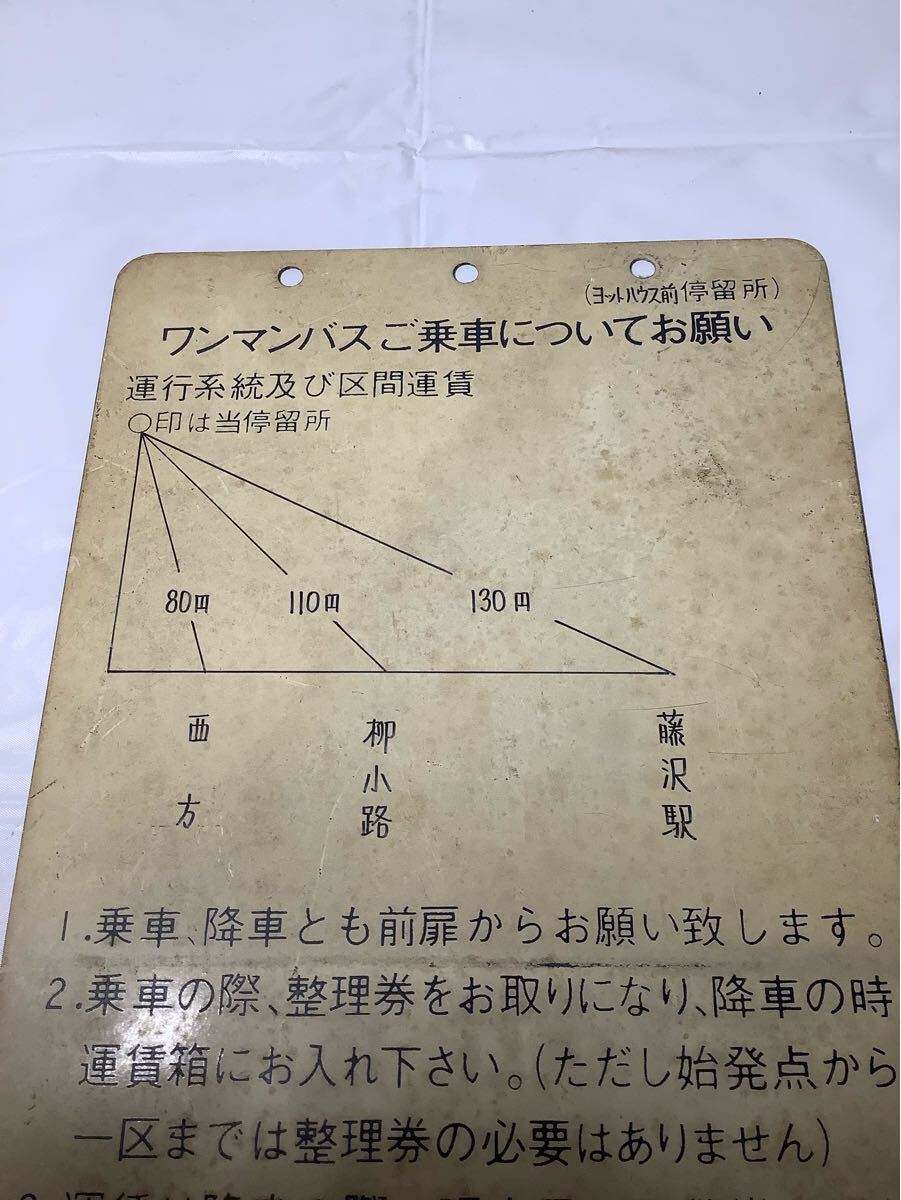 (ヨットハウス前停留所)
ワンマンバスご乗車についてお願い
運行系統及び区間運賃
○印は当停留所
80円 110円 130円
西方
柳小路
藤沢駅
1.乗車、降車とも前扉からお願い致します。
2.乗車の際、整理券をお取りになり、降車の時
運賃箱にお入れ下さい。(ただし始発点から
一区までは整理券の必要はありません)